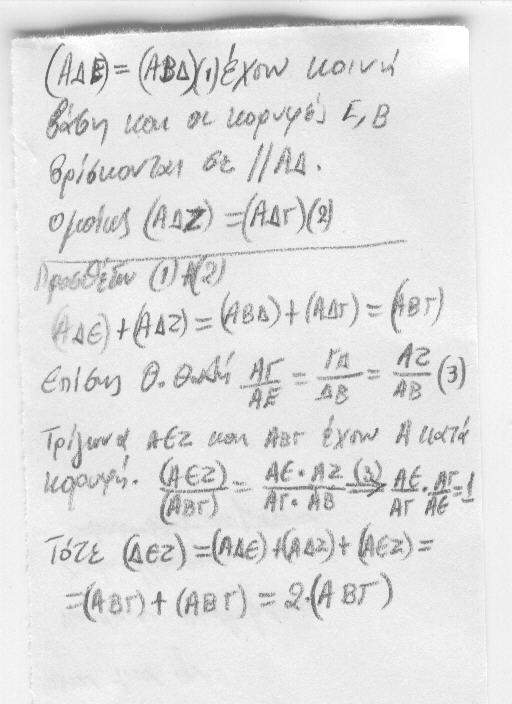 (ΑΔΕ) = (ΑΒΔ)(1) έχουν κοινή
βάση και οι κορυφές Ε, Β
βρίσκονται σε // ΑΔ.
Ομοίως (ΑΔΖ) = (ΑΔΓ)(2)
Προσθέτω (1)+(2)
(ΑΔΕ)+(ΑΔΖ)=(ΑΒΔ)+(ΑΔΓ)=(ΑΒΓ)
Επίσης Θ. Θαλή ΑΓ/ΑΕ = ΓΔ/ΔΒ = ΑΖ/ΑΒ (3)
Τρίγωνα ΑΕΖ και ΑΒΓ έχουν Α κατά
κορυφή. (ΑΕΖ)/(ΑΒΓ) = ΑΕ·ΑΖ/ΑΓ·ΑΒ (3)⇒ ΑΕ/ΑΓ · ΑΓ/ΑΕ = 1
Τότε (ΔΕΖ) =(ΑΔΕ)+(ΑΔΖ)+(ΑΕΖ)=
=(ΑΒΓ)+(ΑΒΓ) = 2·(ΑΒΓ)